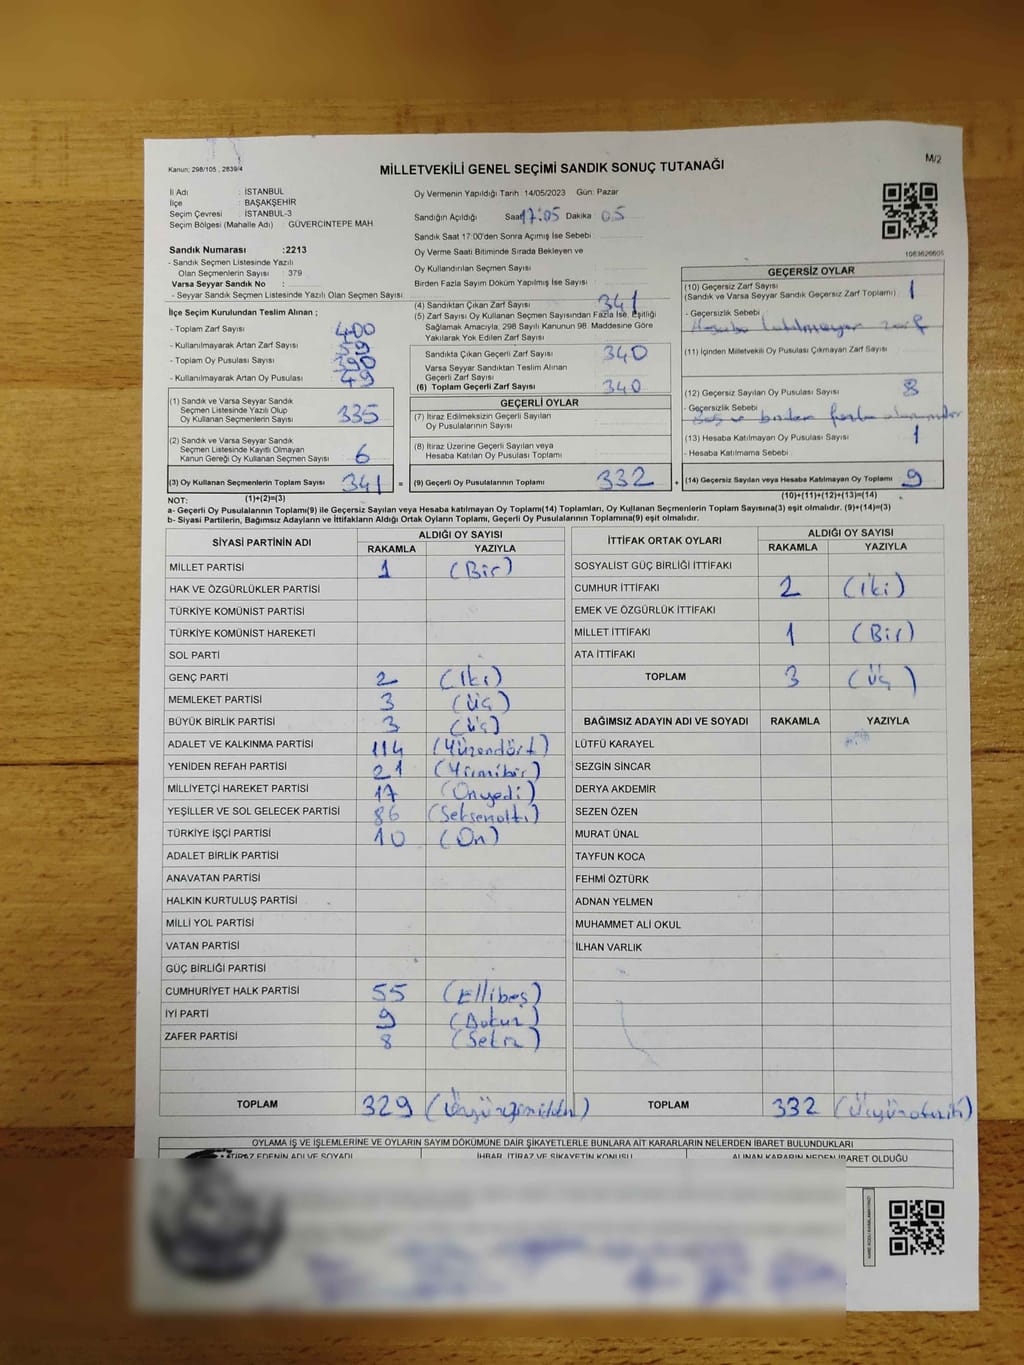 Kanun: 298/105 , 2839/4
MİLLETVEKİLİ GENEL SEÇİMİ SANDIK SONUÇ TUTANAĞI
M/2
İl Adı : İSTANBUL
İlçe : BAŞAKŞEHİR
Seçim Çevresi : İSTANBUL-3
Seçim Bölgesi (Mahalle Adı) : GÜVERCİNTEPE MAH
Oy Vermenin Yapıldığı Tarih 14/05/2023 Gün: Pazar
Sandığın Açıldığı Saat 17:05 Dakika 05
Sandık Saat 17:00'den Sonra Açımış İse Sebebi :
Oy Verme Saati Bitiminde Sırada Bekleyen ve
Oy Kullandırılan Seçmen Sayısı :
Birden Fazla Sayım Döküm Yapılmış İse Sayısı :
Sandık Numarası :2213
- Sandık Seçmen Listesinde Yazılı
Olan Seçmenlerin Sayısı : 379
Varsa Seyyar Sandık No :
- Seyyar Sandık Seçmen Listesinde Yazılı Olan Seçmen Sayısı
İlçe Seçim Kurulundan Teslim Alınan ;
- Toplam Zarf Sayısı 400
- Kullanılmayarak Artan Zarf Sayısı 59
- Toplam Oy Pusulası Sayısı 390
- Kullanılmayarak Artan Oy Pusulası 49
(1) Sandık ve Varsa Seyyar Sandık
Seçmen Listesinde Yazılı Olup
Oy Kullanan Seçmenlerin Sayısı 335
(2) Sandık ve Varsa Seyyar Sandık
Seçmen Listesinde Kayıtlı Olmayan
Kanun Gereği Oy Kullanan Seçmen Sayısı 6
(3) Oy Kullanan Seçmenlerin Toplam Sayısı 341 =
(4) Sandıktan Çıkan Zarf Sayısı 341
(5) Zarf Sayısı Oy Kullanan Seçmen Sayısından Fazla İse, Eşitliği
Sağlamak Amacıyla, 298 Sayılı Kanunun 98. Maddesine Göre
Yakılarak Yok Edilen Zarf Sayısı
Sandıkta Çıkan Geçerli Zarf Sayısı 340
Varsa Seyyar Sandıktan Teslim Alınan
Geçerli Zarf Sayısı
(6) Toplam Geçerli Zarf Sayısı 340
GEÇERLİ OYLAR
(7) İtiraz Edilmeksizin Geçerli Sayılan
Oy Pusulalarının Sayısı
(8) İtiraz Üzerine Geçerli Sayılan veya
Hesaba Katılan Oy Pusulası Toplamı
(9) Geçerli Oy Pusulalarının Toplamı 332 +
1083626605
GEÇERSİZ OYLAR
(10) Geçersiz Zarf Sayısı 1
(Sandık ve Varsa Seyyar Sandık Geçersiz Zarf Toplamı)
- Geçersizlik Sebebi
Hesaba katılmayan zarf
(11) İçinden Milletvekili Oy Pusulası Çıkmayan Zarf Sayısı
(12) Geçersiz Sayılan Oy Pusulası Sayısı 8
- Geçersizlik Sebebi
birden fazla
(13) Hesaba Katılmayan Oy Pusulası Sayısı 1
- Hesaba Katılmama Sebebi
(14) Geçersiz Sayılan veya Hesaba Katılmayan Oy Toplamı 9
NOT: (1)+(2)=(3)
(10)+(11)+(12)+(13)=(14)
a- Geçerli Oy Pusulalarının Toplamı(9) ile Geçersiz Sayılan veya Hesaba katılmayan Oy Toplamı(14) Toplamları, Oy Kullanan Seçmenlerin Toplam Sayısına(3) eşit olmalıdır. (9)+(14)=(3)
b- Siyasi Partilerin, Bağımsız Adayların ve İttifakların Aldığı Ortak Oyların Toplamı, Geçerli Oy Pusulalarının Toplamına(9) eşit olmalıdır.
SİYASİ PARTİNİN ADI ALDIĞI OY SAYISI
RAKAMLA YAZIYLA
MİLLET PARTİSİ 1 (Bir)
HAK VE ÖZGÜRLÜKLER PARTİSİ
TÜRKİYE KOMÜNİST PARTİSİ
TÜRKİYE KOMÜNİST HAREKETİ
SOL PARTİ
GENÇ PARTİ 2 (İki)
MEMLEKET PARTİSİ 3 (Üç)
BÜYÜK BİRLİK PARTİSİ 3 (Üç)
ADALET VE KALKINMA PARTİSİ 114 (Yüzondört)
YENİDEN REFAH PARTİSİ 21 (Yirmibir)
MİLLİYETÇİ HAREKET PARTİSİ 17 (Onyedi)
YEŞİLLER VE SOL GELECEK PARTİSİ 86 (Seksenaltı)
TÜRKİYE İŞÇİ PARTİSİ 10 (On)
ADALET BİRLİK PARTİSİ
ANAVATAN PARTİSİ
HALKIN KURTULUŞ PARTİSİ
MİLLİ YOL PARTİSİ
VATAN PARTİSİ
GÜÇ BİRLİĞİ PARTİSİ
CUMHURİYET HALK PARTİSİ 55 (Ellibeş)
İYİ PARTİ 9 (Dokuz)
ZAFER PARTİSİ 8 (Sekiz)
TOPLAM 329
İTTİFAK ORTAK OYLARI ALDIĞI OY SAYISI
RAKAMLA YAZIYLA
SOSYALIST GÜÇ BİRLİĞİ İTTİFAKI
CUMHUR İTTİFAKI 2 (İki)
EMEK VE ÖZGÜRLÜK İTTİFAKI
MİLLET İTTİFAKI 1 (Bir)
ATA İTTİFAKI
TOPLAM 3 (Üç)
BAĞIMSIZ ADAYIN ADI VE SOYADI RAKAMLA YAZIYLA
LÜTFÜ KARAYEL
SEZGİN SİNCAR
DERYA AKDEMİR
SEZEN ÖZEN
MURAT ÜNAL
TAYFUN KOCA
FEHMİ ÖZTÜRK
ADNAN YELMEN
MUHAMMET ALİ OKUL
İLHAN VARLIK
TOPLAM 332
OYLAMA İŞ VE İŞLEMLERİNE VE OYLARIN SAYIM DÖKÜMÜNE DAİR ŞİKAYETLERLE BUNLARA AİT KARARLARIN NELERDEN İBARET BULUNDUKLARI
İTİRAZ EDENİN ADI VE SOYADI İHBAR, İTİRAZ VE ŞİKAYETİN KONUSU ALINAN KARARIN NEDEN İBARET OLDUĞU